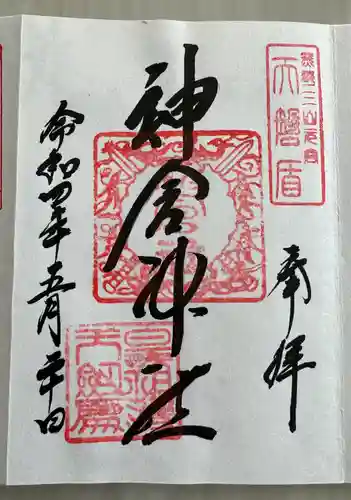 奉拝
熊野三山元宮
天磐盾
神倉神社
令和四年五月二十日